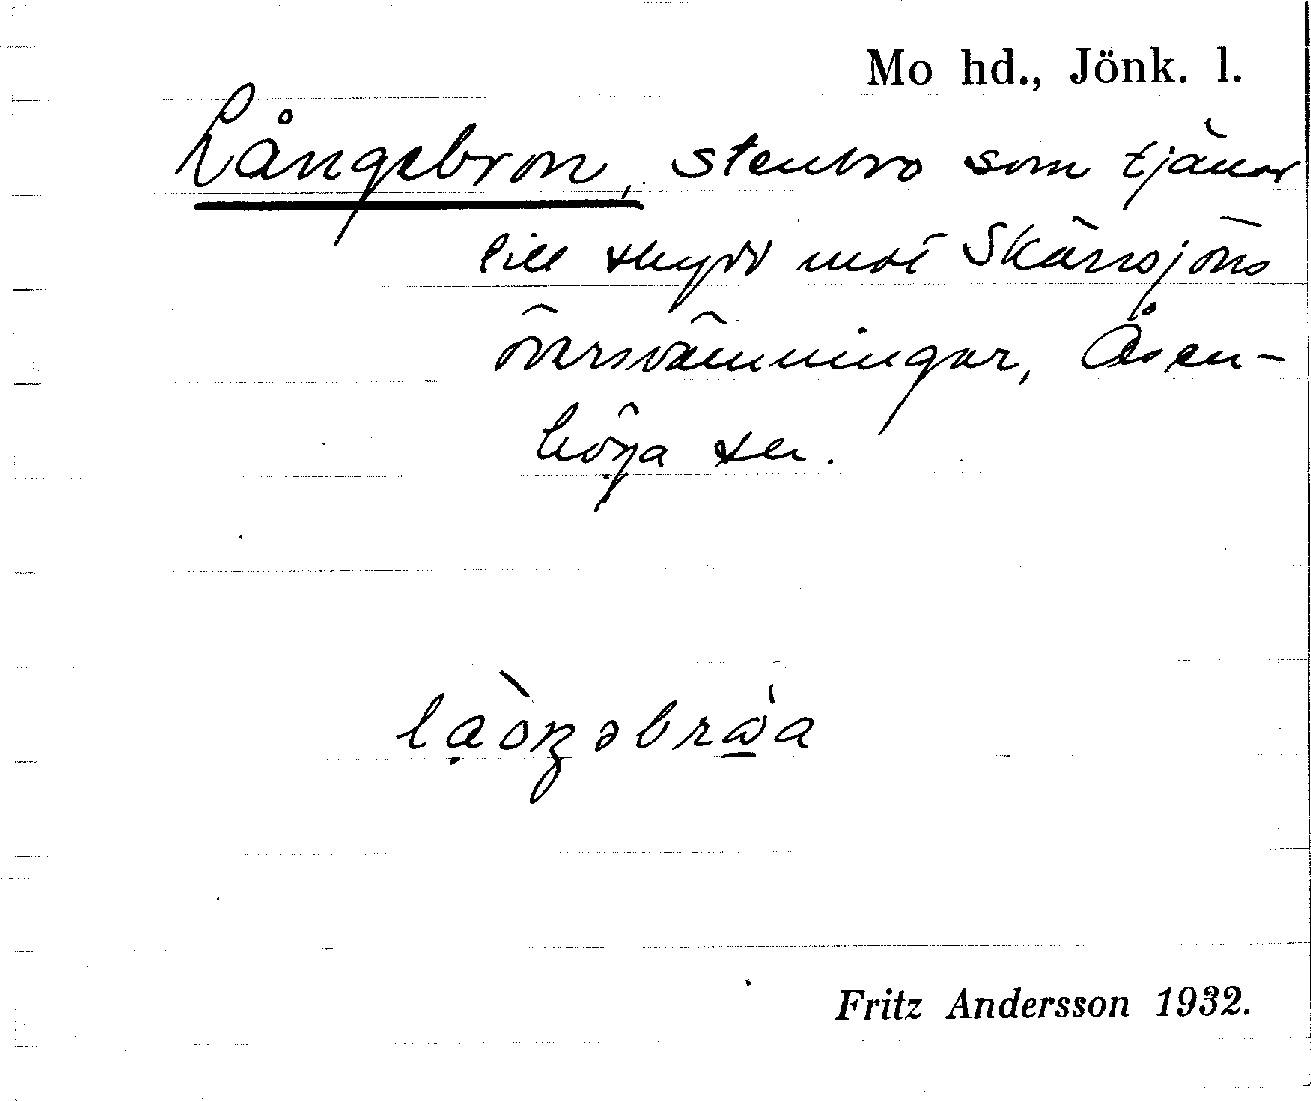 Mo hd., Jönk. l.
Långebron, stenbro som tjänar
till skydd mot Skärvsjöns
översvämningar, Åsen-
höga sn.
Fritz Andersson 1932.